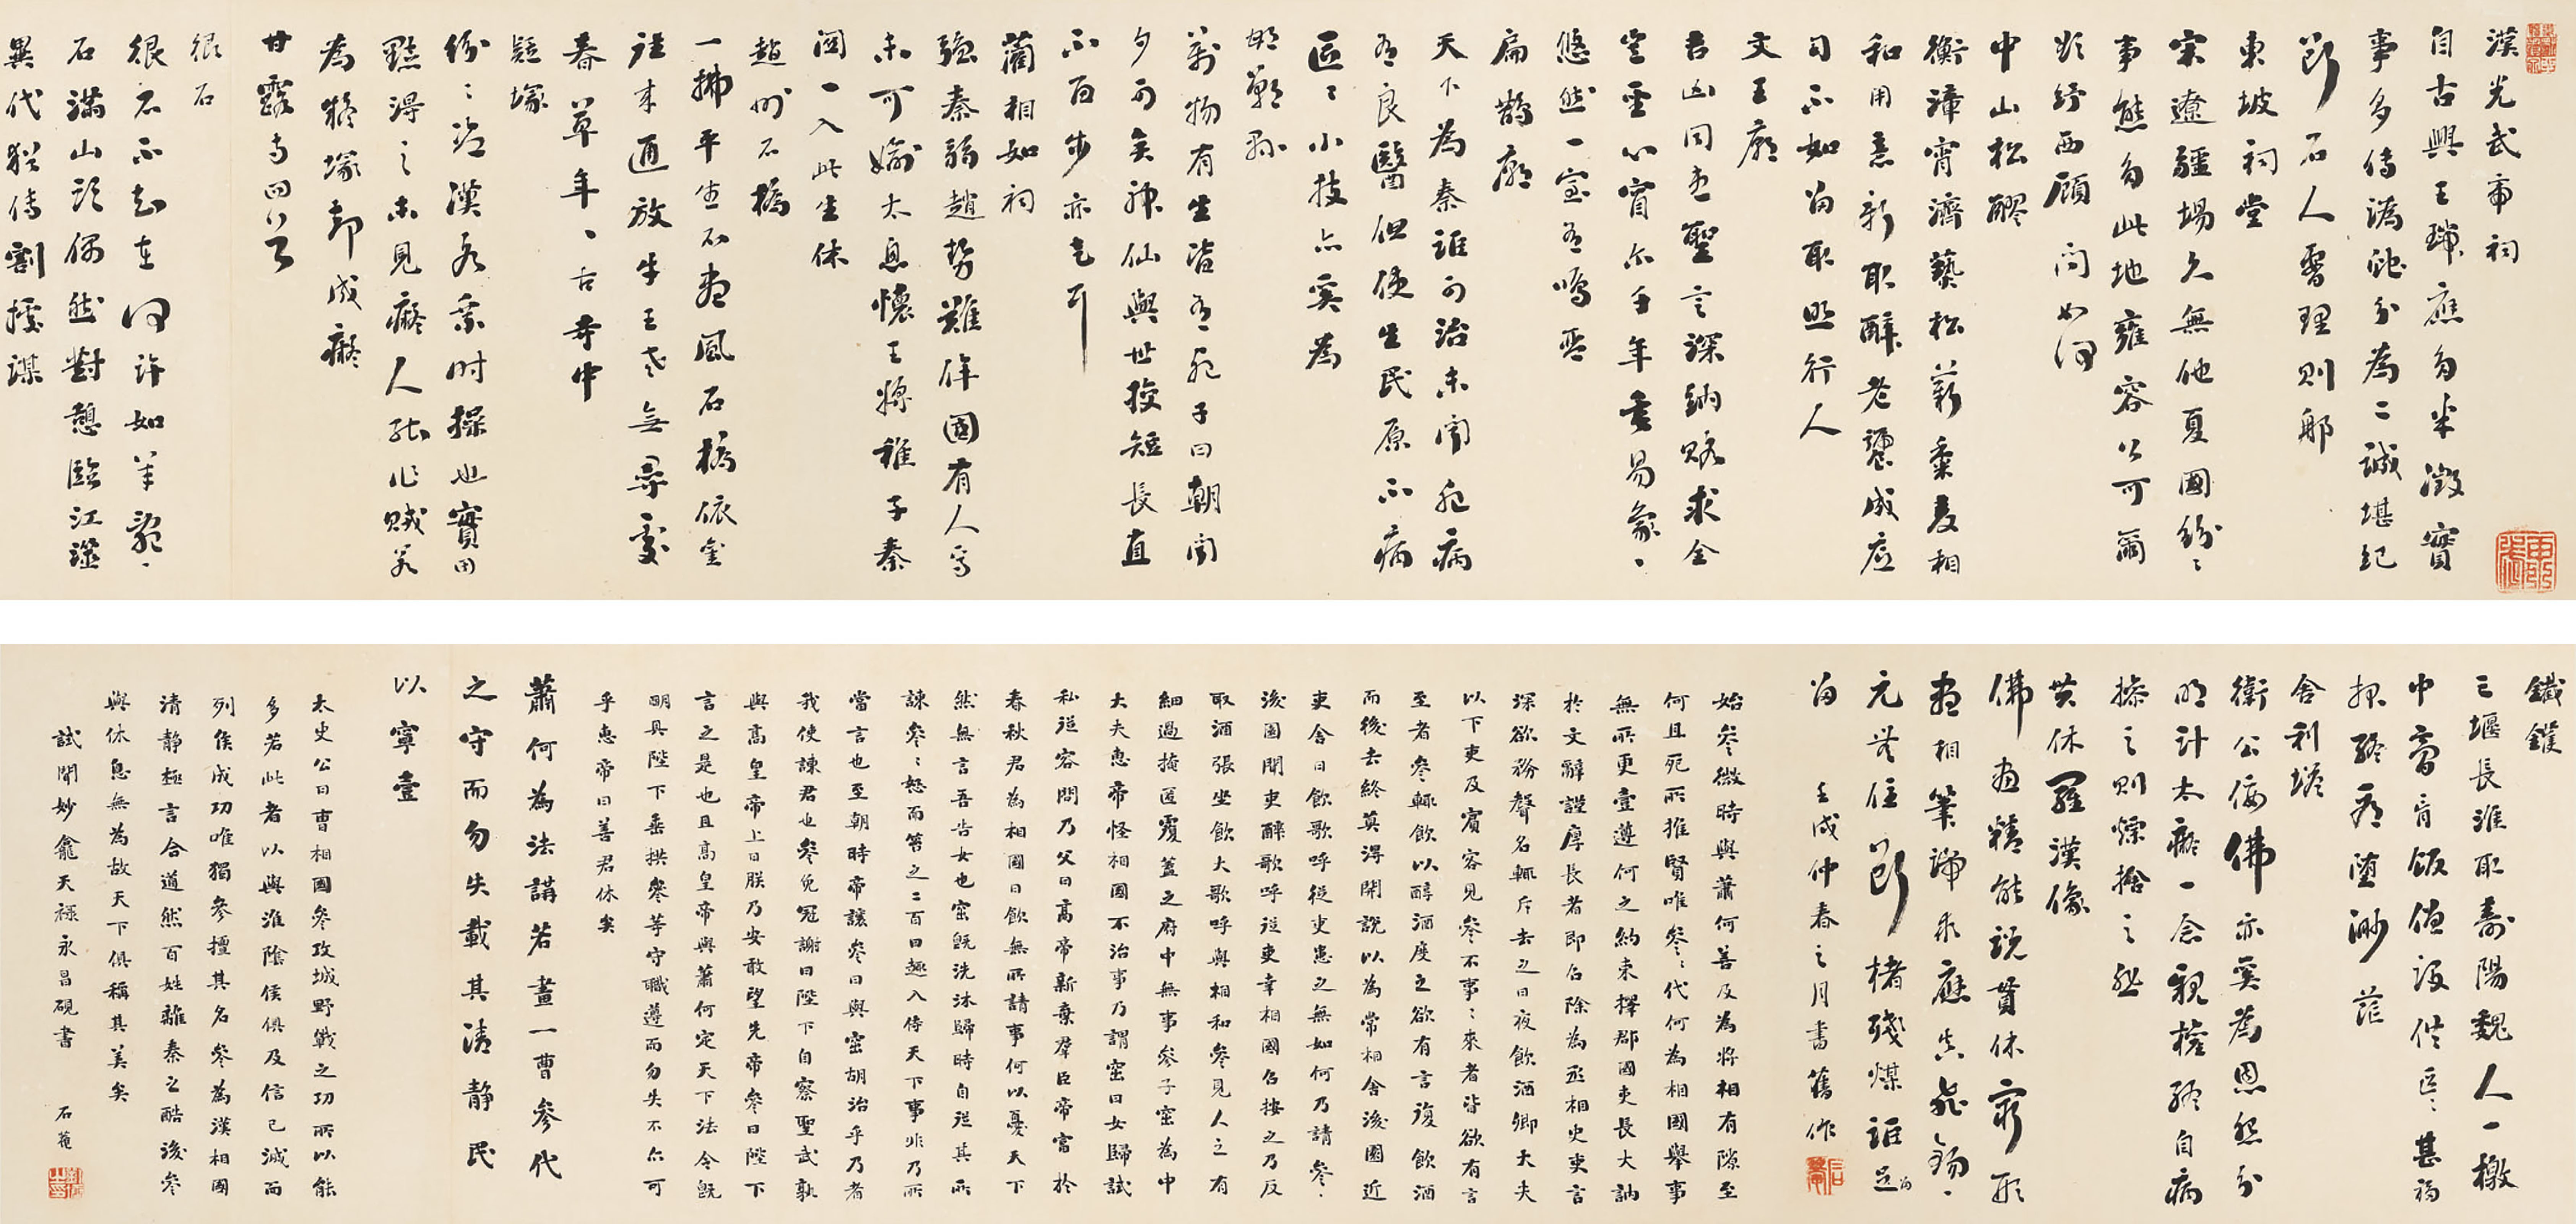 漢光武帝祠
自古興王瑞應多半澂實
事多傳譌詭分為二誠堪紀
斷石人omitted理則那
東坡祠堂
宋遼疆場久無他夏國紛〻
事熊多此地雍容公可爾
紆西顧問如何
中山松醪
衡漳宵濟藝松薪黍麥相
和用意新取醉老饕成底
句不如留取照行人
文王廟
吉凶同患聖言深納賂求全
豈重心實爾千年重易象
悠然一室有鳴琴
扁鵲廟
天下為秦誰可治未聞死病
有良醫但使生民原不病
區〻小技亦奚為
邯鄲
萬物有生皆有死子曰朝聞
夕可矣神仙與世挍短長直
不百步亦走耳
藺相如祠
強秦弱趙勢難侔國有人焉
未可媮太息懷王將稚子秦
關一入此生休
趙州石橋
一拂平生不畫風石橋依舊
往來通放牛王老無尋處
春草年〻古寺中
疑塚
紛〻盜漢為乘時操也實田
黠得之未見癡人能作賊若
為疑塚却成癡
甘露寺四首
很石
很石不知在何許如羊群〻
石滿山頭偶然對憩臨江滸
異代猶傳割據謀
鐵鑊
三堰長淮取壽陽魏人一檄
中膏肓飯僧設供區〻甚福
報終看墮渺茫
舍利塔
衛公佞佛亦奚為恩怨分
明計太癡一念親稽終自病
操之則慄捨之悲
貫休羅漢像
佛畫精能說貫休窮形
盡相筆端求應真飛錫〻
元無住斷楮殘煤詎足為
留 壬戌仲春之月書舊作
始參微時與蕭何善及為將相有隙至
何且死所推賢唯參〻代何為相國舉事
無所更壹遵何之約束擇郡國吏長大訥
於文辭謹厚長者即召除為丞相史吏言
深欲務聲名輒斥去之日夜飲酒卿大夫
以下吏及賓客見參不事〻來者皆欲有言
至者參輒飲以醇酒度之欲有言復飲酒
而後去終莫得開說以為常相舍後園近
吏舍日飲歌呼從吏患之無如何乃請參〻
後園聞吏醉歌呼從吏幸相國召按之乃反
取酒張坐飲大歌呼與相和參見人之有
細過掩匿覆蓋之府中無事參子窋為中
大夫惠帝怪相國不治事乃謂窋曰女歸試
私從容問乃父曰高帝新棄羣臣帝富於
春秋君為相國日飲無所請事何以憂天下
然無言吾告女也窋既洗沐歸時自從其所
諫參〻怒而笞之二百曰趣入侍天下事非乃所
當言也至朝時帝讓參曰與窋胡治乎乃者
我使諫君也參免冠謝曰陛下自察聖武孰
與高皇帝上曰朕乃安敢望先帝參曰陛下
言之是也且高皇帝與蕭何定天下法令既
明具陛下垂拱參等守職遵而勿失不亦可
乎惠帝曰善君休矣
蕭何為法講若畫一曹參代
之守而勿失載其清靜民
以寧壹
太史公曰曹相國參攻城野戰之功所以能
多若此者以與淮陰侯俱及信已滅而
列侯成功唯獨參擅其名參為漢相國
清靜極言合道然百姓離秦之酷後參
與休息無為故天下俱稱其美矣
試閒妙龕天祿永昌硯書 石菴